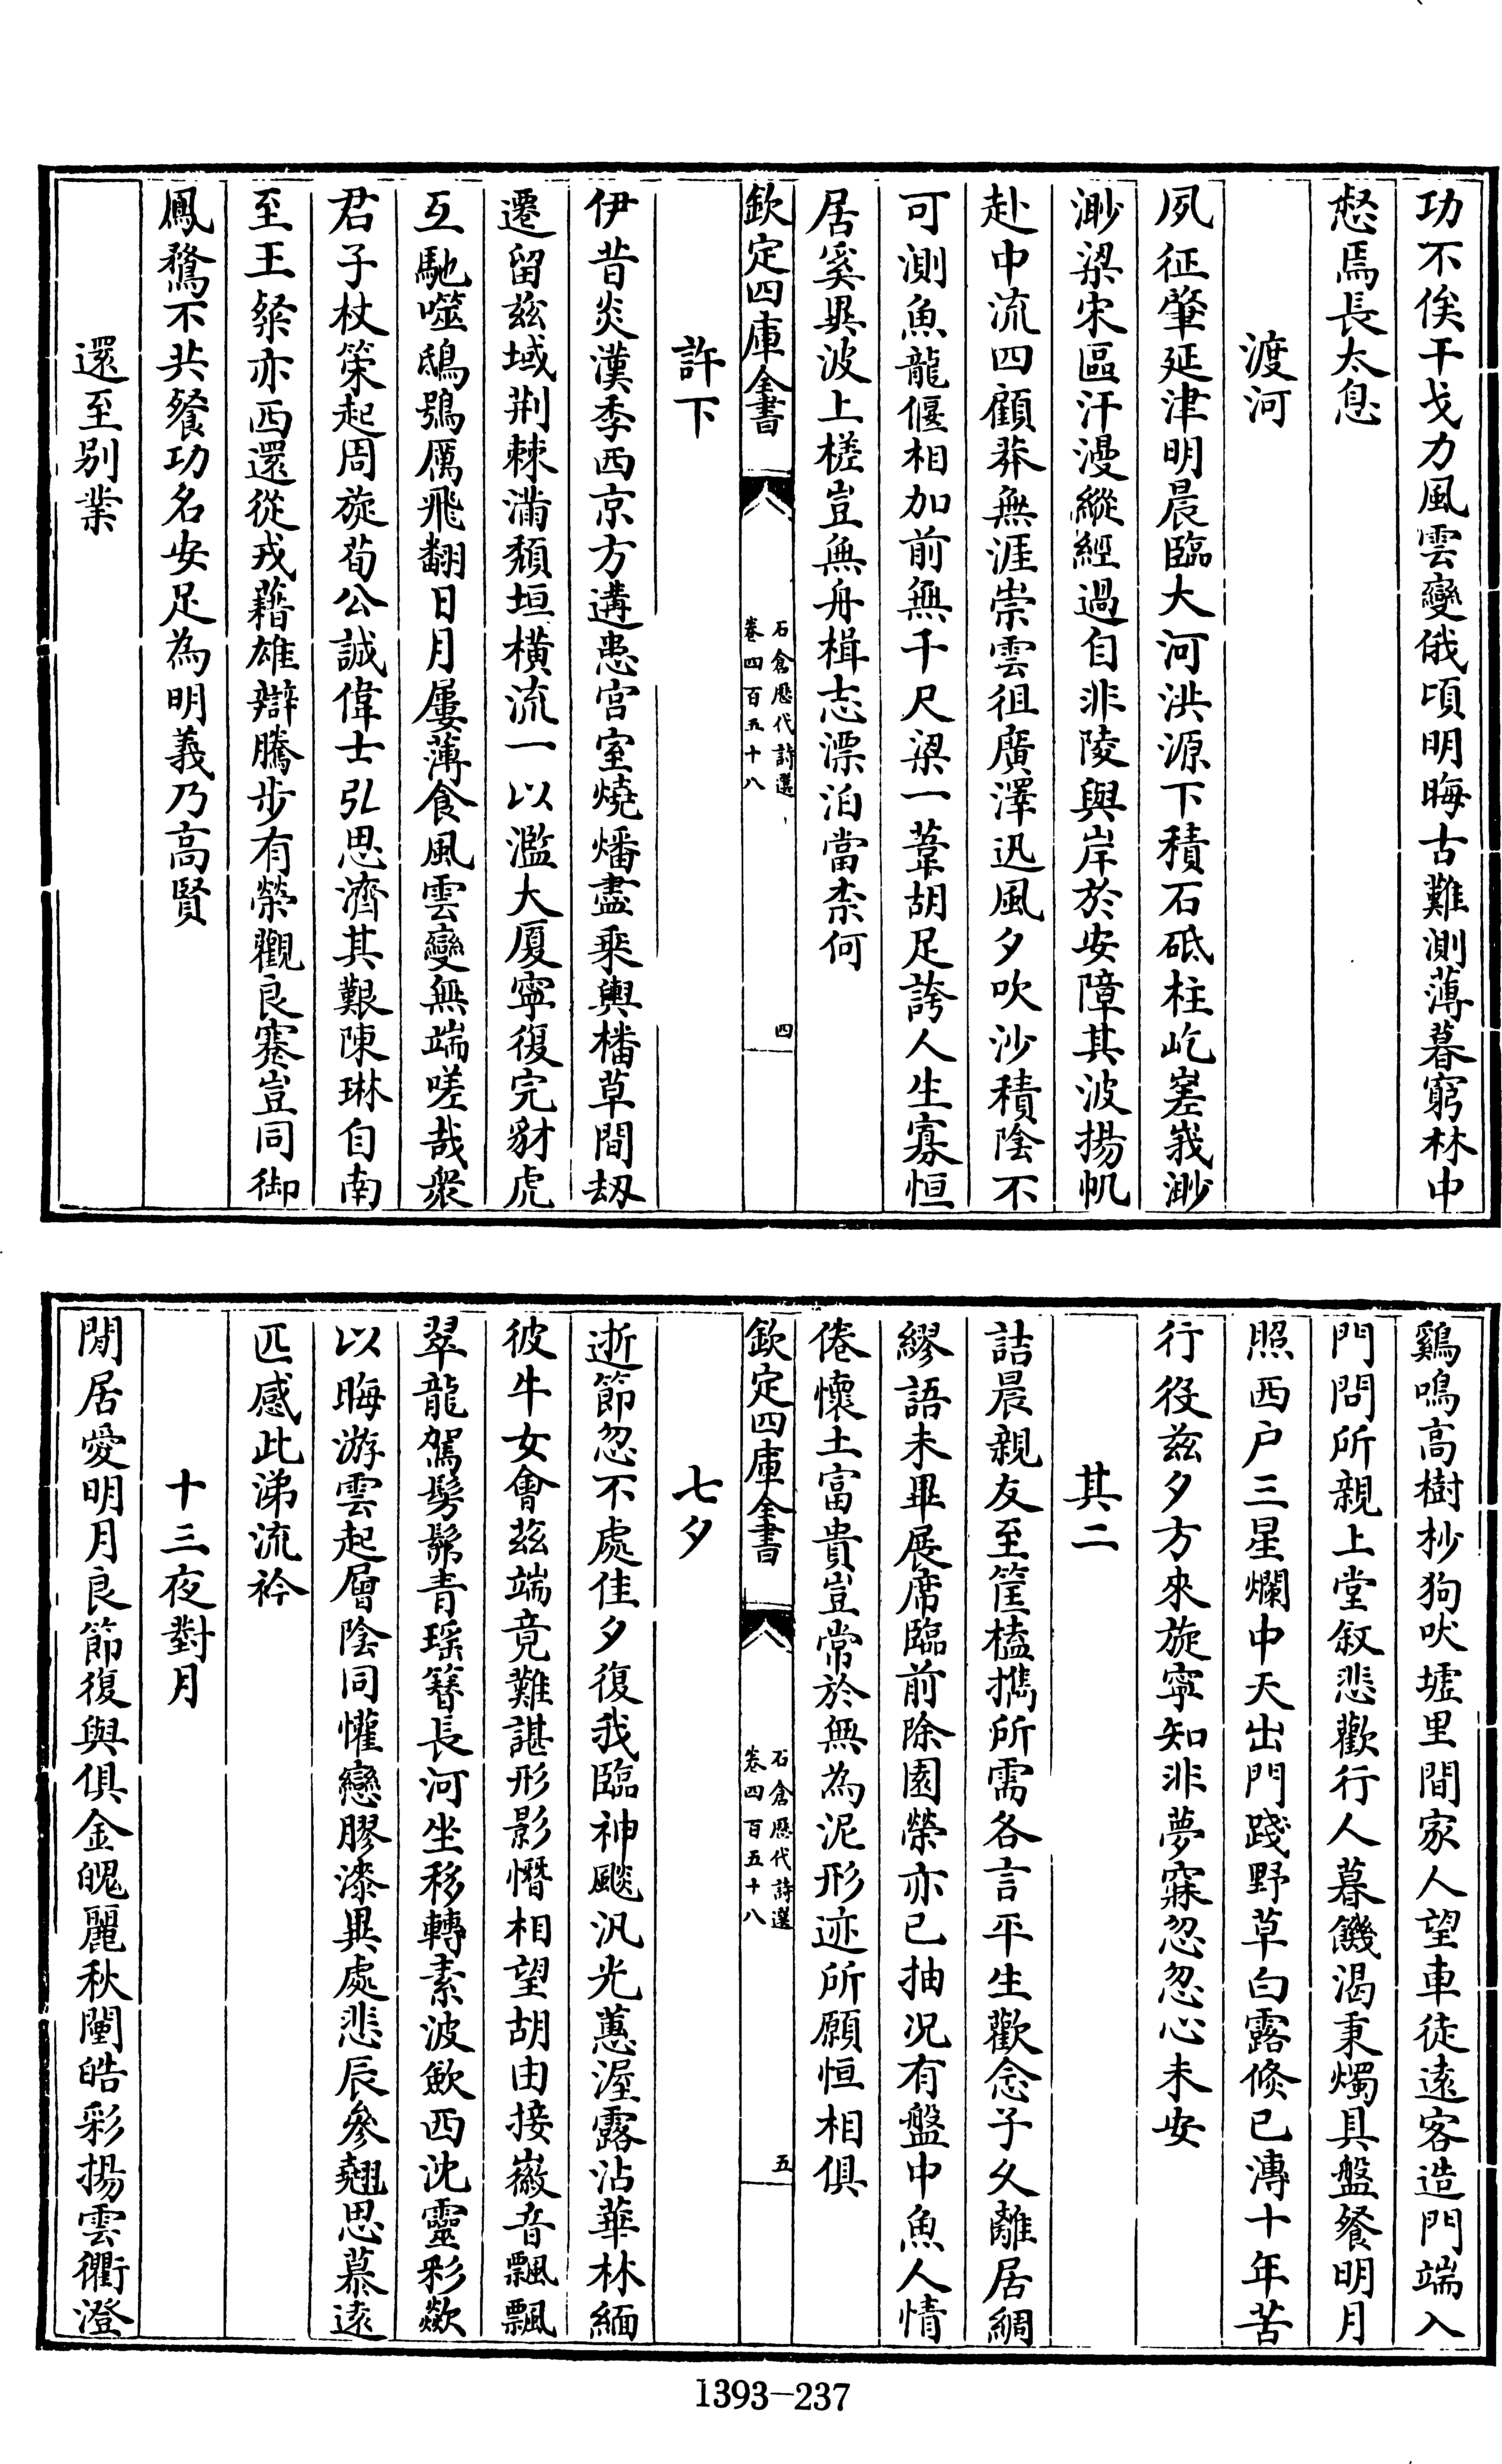 功不俟干戈力風雲變俄頃明晦古難測薄暮窮林中
愁焉長太息
渡河
夙征肇延津明晨臨大河洪源下積石砥柱屹嵳峩渺
渺梁宋區汗漫縱經過自非陵與岸於安障其波揚帆
赴中流四顧莽無涯崇雲徂廣澤迅風夕吹沙積陰不
可測魚龍偃相加前無千尺梁一葦胡足誇人生寡恒
居奚異波上槎豈無舟楫志漂泊當柰何
欽定四庫全書
石倉歷代詩選
卷四百五十八
四
許下
伊昔炎漢季西京方遘患宫室燒燔盡乘輿播草間刼
遷留兹域荆棘滿頽垣横流一以濫大厦寧復完豺虎
互馳噬鴟鴞厲飛翻日月屢薄食風雲變無端嗟哉衆
君子杖策起周旋荀公誠偉士弘思濟其艱陳琳自南
至王粲亦西還從戎藉雄辯騰步有榮觀良蹇豈同御
鳳鶩不共餐功名安足為明義乃高賢
還至别業
鷄鳴高樹杪狗吠墟里間家人望車徒逺客造門端入
門問所親上堂叙悲歡行人暮饑渴秉燭具盤餐明月
照西户三星爛中天出門踐野草白露倏已漙十年苦
行役兹夕方來旋寧知非夢寐忽忽心未安
其二
詰晨親友至筐榼攜所需各言平生歡念子久離居綢
繆語未畢展席臨前除園榮亦已抽况有盤中魚人情
倦懷土富貴豈常於無為泥形迹所願恒相俱
欽定四庫全書
石倉歷代詩選
卷四百五十八
五
七夕
逝節忽不處佳夕復我臨神飈汎光蕙渥露沾華林緬
彼牛女會兹端竟難諶形影憯相望胡由接徽音飄飄
翠龍駕髣髴青瑶簪長河坐移轉素波歘西沈靈彩歘
以晦游雲起層陰同懽戀膠漆異處悲辰參翹思慕逺
匹感此涕流衿
十三夜對月
閒居愛明月良節復與俱金魄麗秋闈皓彩揚雲衢澄
1393-237